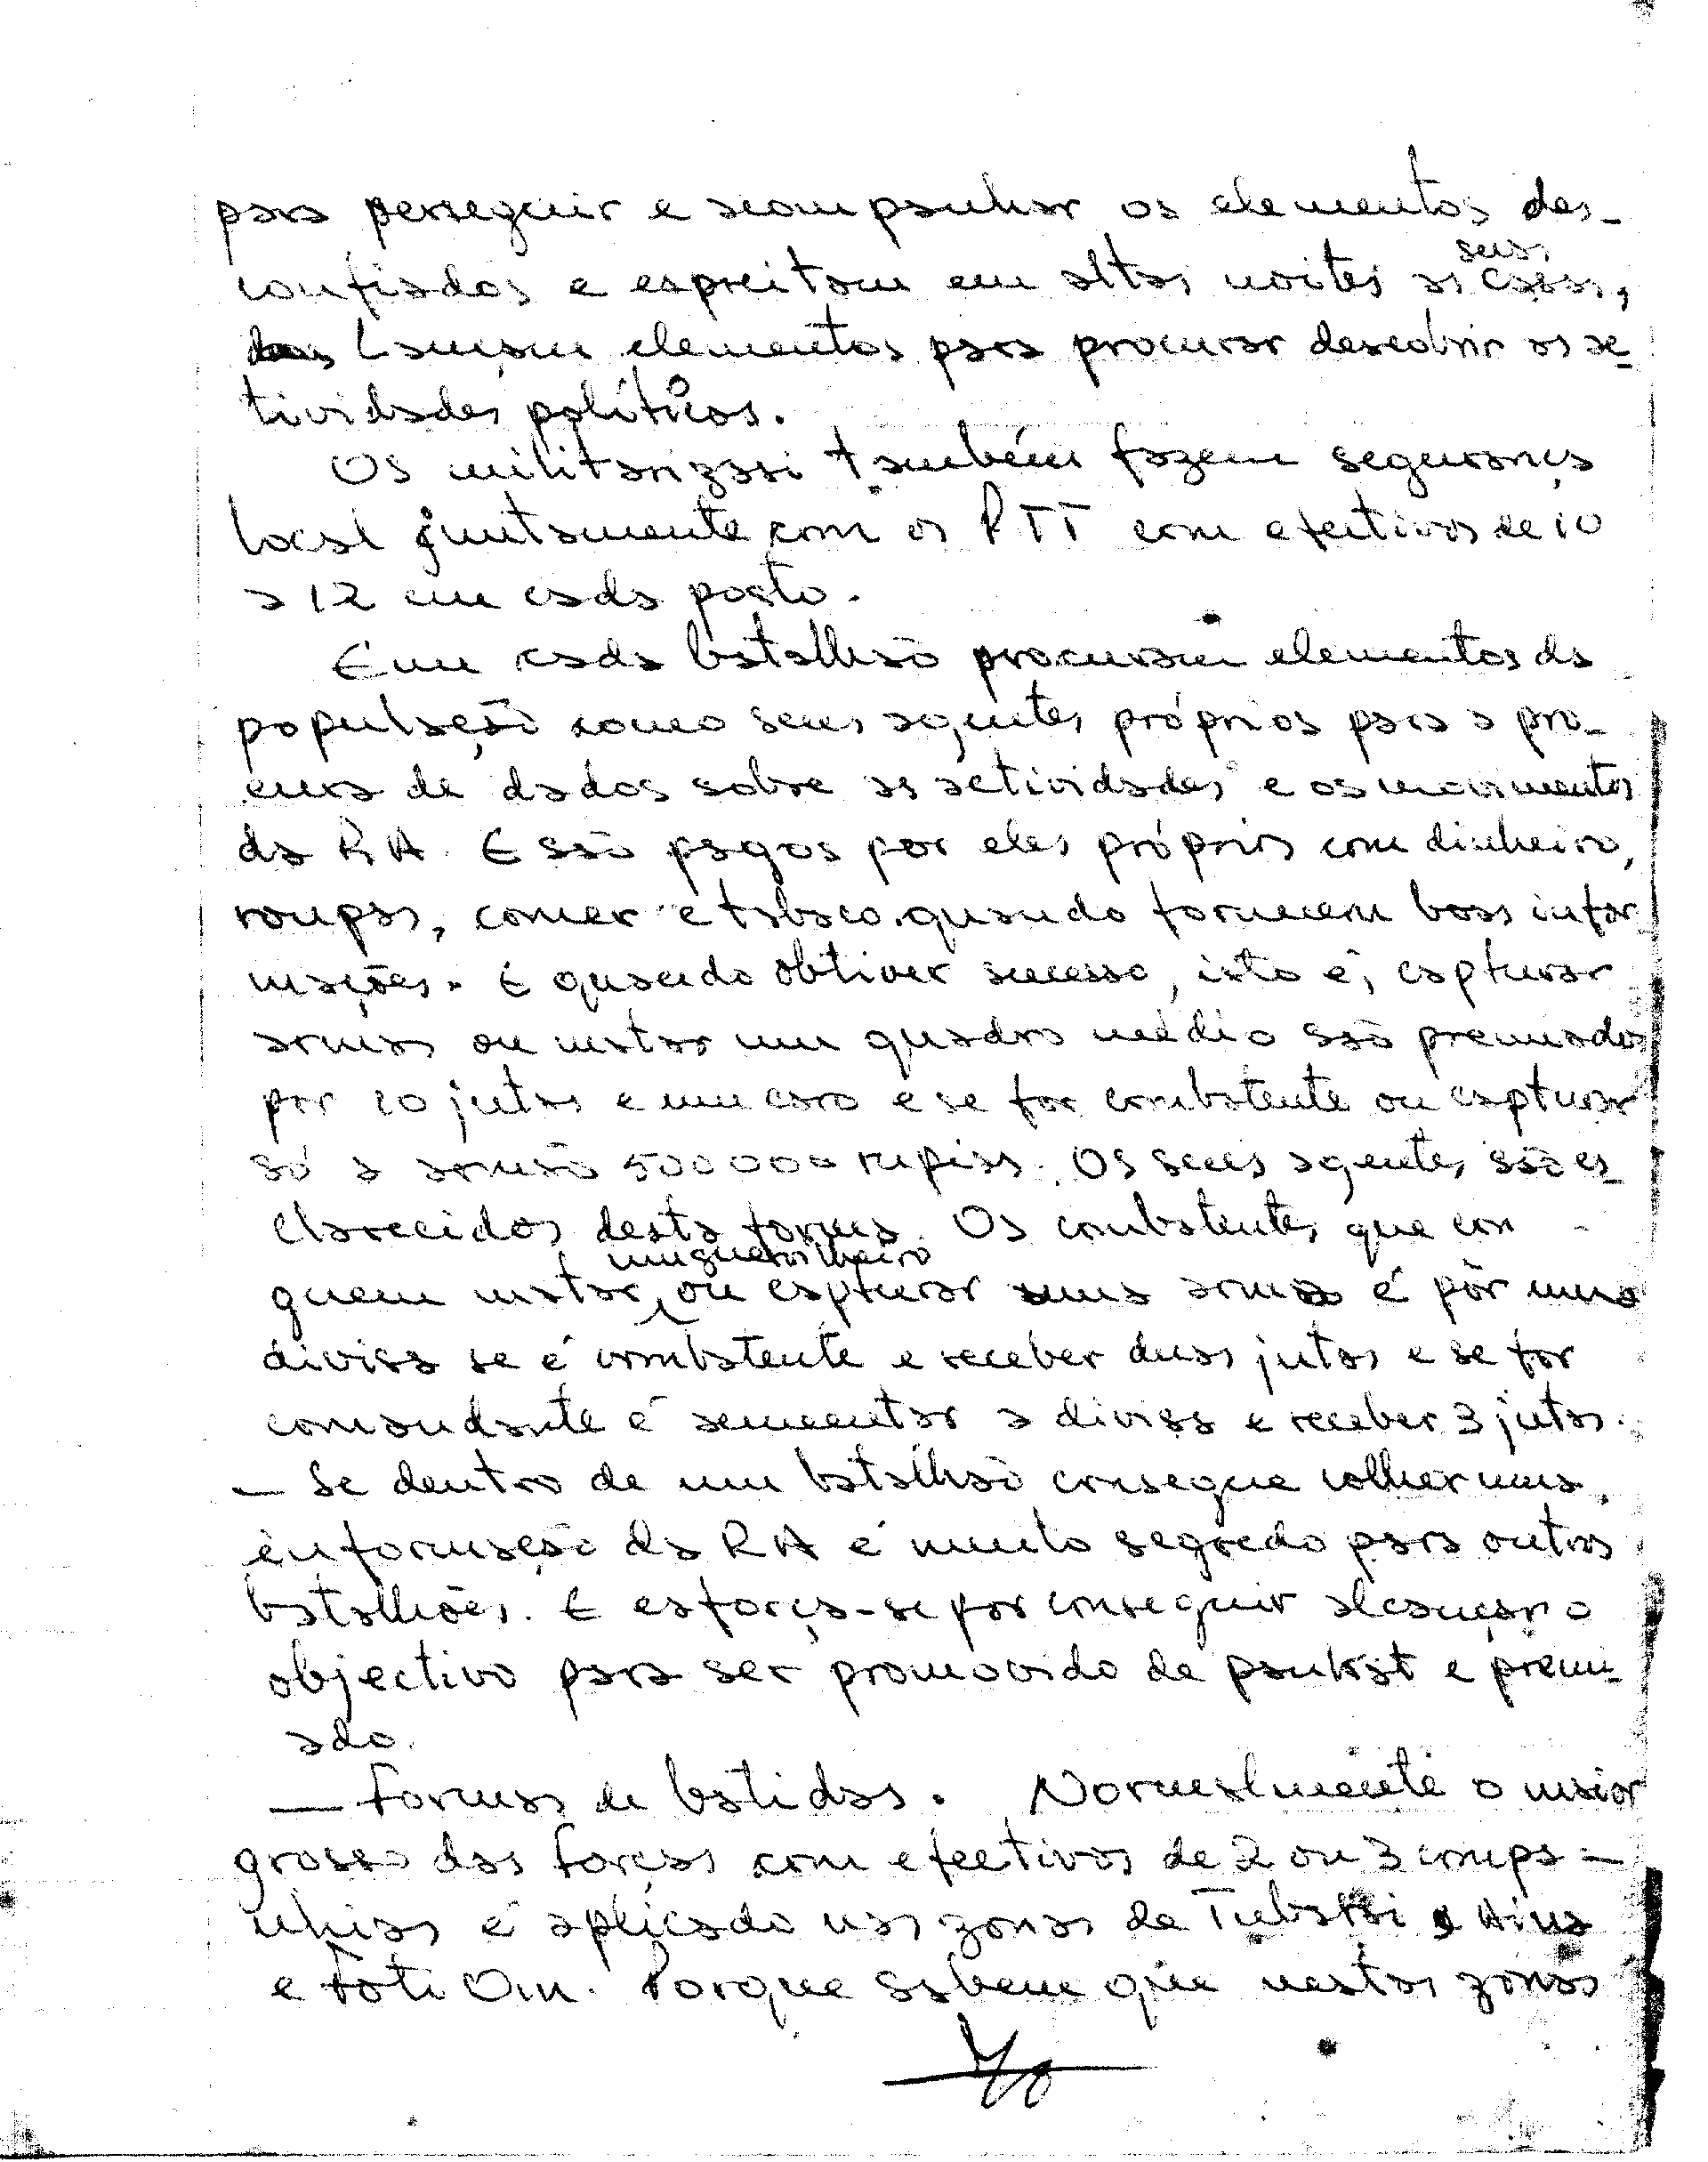 para perseguir e acompanhar os elementos des-
confiados e espreitam em altas noites as suas casas,
Lançam elementos para procurar descobrir as ac-
tividades políticas.
Os militarizasi também fazem segurança
local juntamente com os RTT com efectivos de 10
a 12 em cada posto.
Em cada batalhão procuram elementos da
população como seus agentes próprios para a pro-
cura de dados sobre as actividades e os movimentos
da RA. E são pagos por eles próprios com dinheiro,
roupas, comer e tabaco quando fornecem boas infor
mações. E quando obtiver sucesso, isto é, capturar
armas ou matar um quadro médio são premiados
por 10 jutas e um caro e se for combatente ou capturar
só a arma são 500000 rupias. Os seus agentes são es-
clarecidos desta forma. Os combatentes que con-
guem matar um guerrilheiro ou capturar uma arma é pôr uma
divisa se é combatente e receber duas jutas e se for
comandante é aumentar a divisa e receber 3 jutas.
— Se dentro de um batalhão consegue colher uma
informação da RA é muito segredo para outros
batalhões. E esforça-se por conseguir alcançar o
objectivo para ser promovido de pankat e premi-
ado.
— Formas de batidas. Normalmente o maior
grosso das forças com efectivos de 2 ou 3 compa-
nhias é aplicado nas zonas de Tubakai e Aina
e Foti Oin. Porque sabem que nestas zonas